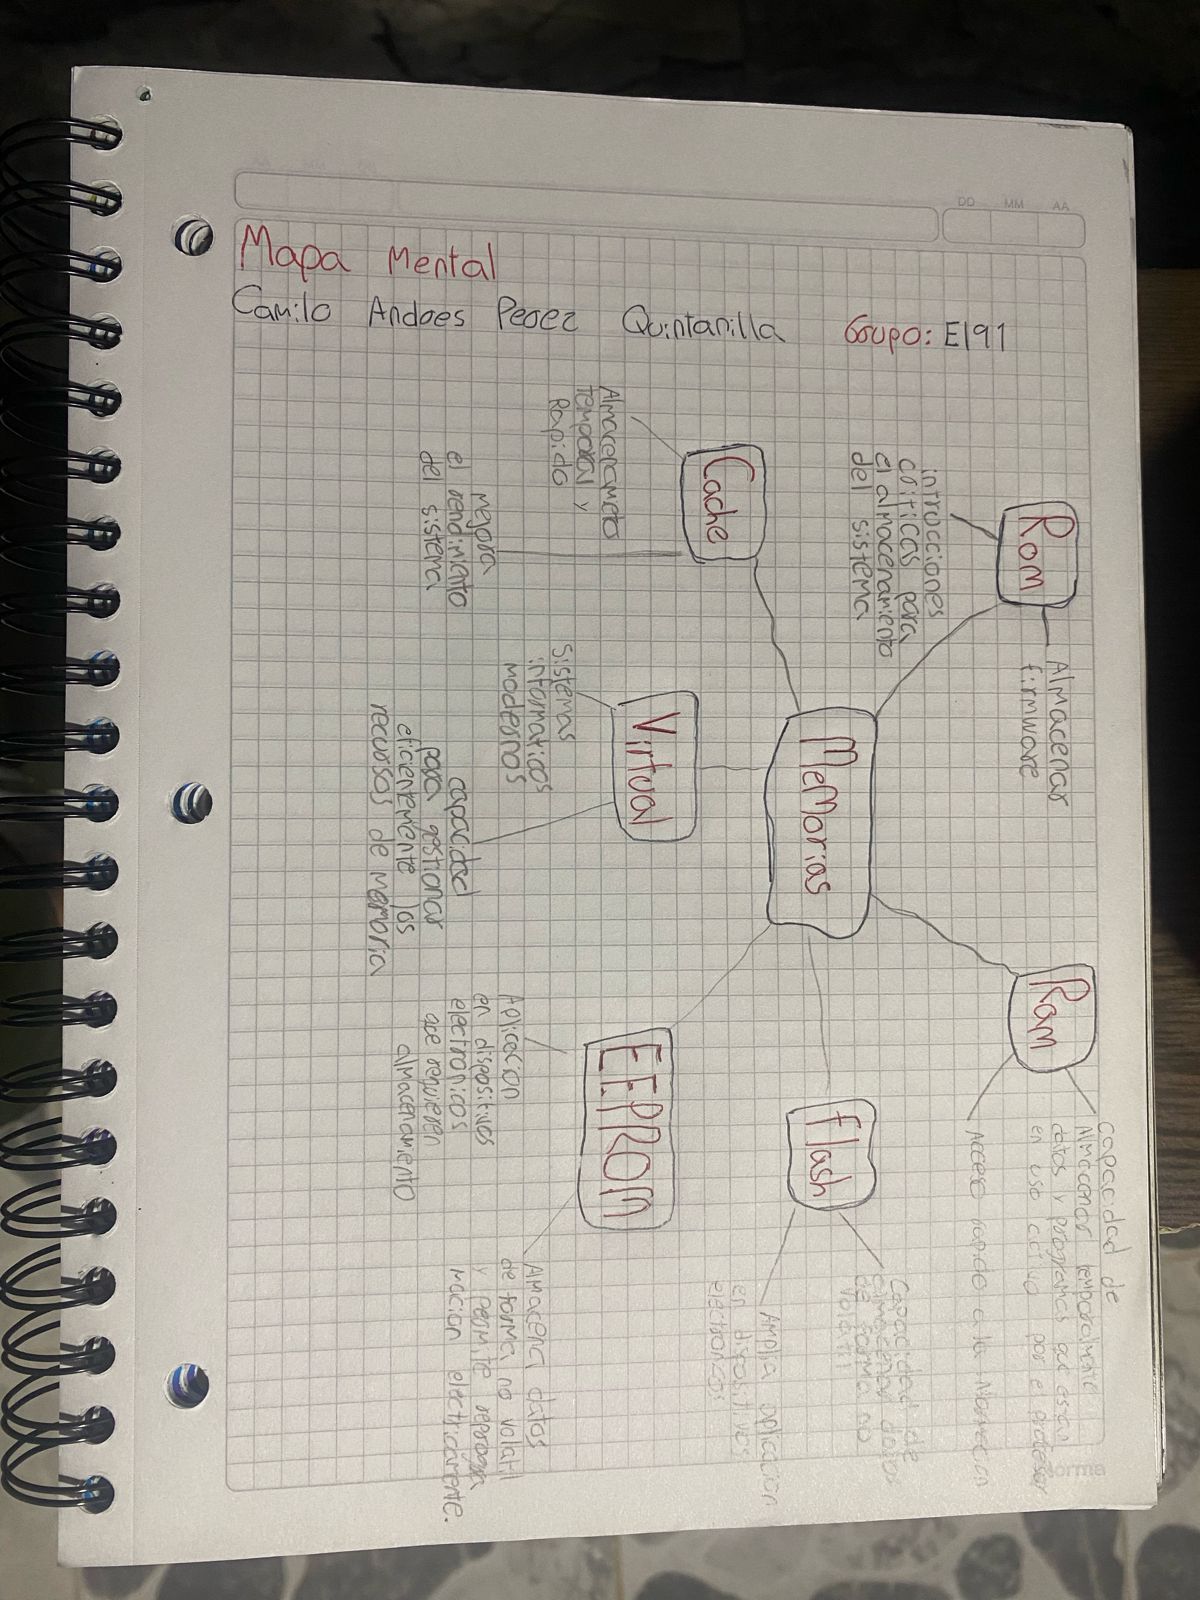 Mapa Mental
Camilo Andres Perez Quintanilla Grupo: E191
Memorias
Rom
Almacenar
firmware
intrucciones
criticas para
el almacenamiento
del sistema
Ram
capacidad de
Almacenar temporalmente
datos y programas que estan
en uso activo por el profesor
Acceso rapido a la
flash
Capacidad de
almacenar datos
de forma no
volatil
Amplia aplicacion
en dispositivos
electronicos
Cache
Almacenameto
temporal y
Rapido
mejora
el rendimiento
del sistema
Virtual
Sistemas
informaticos
modernos
capacidad
para gestionar
eficientemente los
recursos de memoria
EEPROM
Aplicacion
en dispositivos
electronicos
que requieren
almacenamiento
Almacena datos
de forma no volatil
y permite reprogra
macion electricamente.
DD MM AA
norma